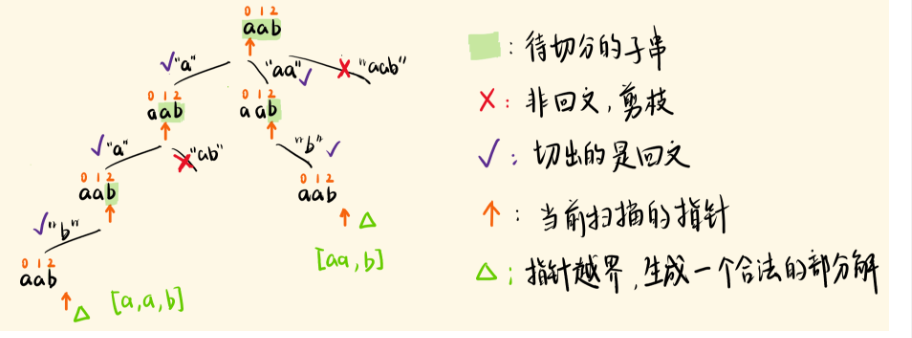 0 1 2
aab
✓"a"
"aa"✓
×"aab"
0 1 2
aab
0 1 2
aab
✓"a"
×"ab"
"b"✓
0 1 2
aab
0 1 2
aab
✓"b"
↑△
[aa,b]
0 1 2
aab
↑△
[a,a,b]
：待切分的子串
×：非回文，剪枝
✓：切出的是回文
↑：当前扫描的指针
△：指针越界，生成一个合法的部分解